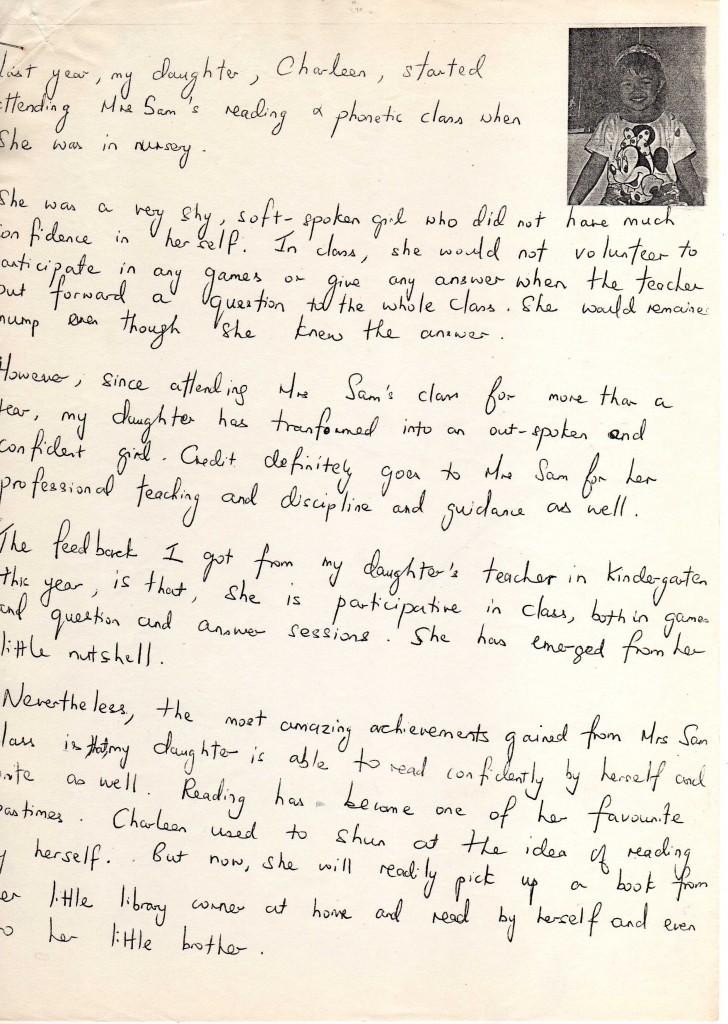 Last year, my daughter, Charleen, started
attending Mrs Sam's reading & phonetic class when
She was in nursery.
She was a very shy, soft-spoken girl who did not have much
confidence in herself. In class, she would not volunteer to
articipate in any games or give any answer when the teacher
out forward a question to the whole class. She would remaine
mump even though she knew the answer.
However, since attending Mrs Sam's class for more than a
year, my daughter has transformed into an out-spoken and
confident girl. Credit definitely goes to Mrs Sam for her
professional teaching and discipline and guidance as well.
The feedback I got from my daughter's teacher in Kindergarten
this year, is that, she is participative in class, both in games
and question and answer sessions. She has emerged from her
little nutshell.
Nevertheless, the most amazing achievements gained from Mrs Sam
lass is that, my daughter is able to read confidently by herself and
rite as well. Reading has become one of her favourite
pastimes. Charleen used to shun at the idea of reading
y herself. But now, she will readily pick up a book from
er little library corner at home and read by herself and even
o her little brother.